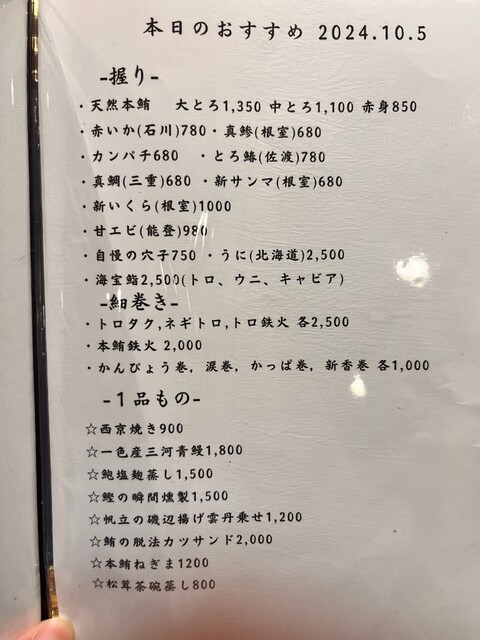 本日のおすすめ 2024.10.5
-握り-
・天然本鮪 大とろ1,350 中とろ1,100 赤身850
・赤いか(石川)780・真鯵(根室)680
・カンパチ680 ・とろ鰆(佐渡)780
・真鯛(三重)680 ・新サンマ(根室)680
・新いくら(根室)1000
・甘エビ(能登)980
・自慢の穴子750 ・うに(北海道)2,500
・海宝鮨2,500(トロ、ウニ、キャビア)
-細巻き-
・トロタク,ネギトロ,トロ鉄火 各2,500
・本鮪鉄火 2,000
・かんぴょう巻, 涙巻, かっぱ巻, 新香巻 各1,000
-１品もの-
☆西京焼き900
☆一色産三河青鰻1,800
☆鮑塩麹蒸し1,500
☆鰹の瞬間燻製1,500
☆帆立の磯辺揚げ雲丹乗せ1,200
☆鮪の脱法カツサンド2,000
☆本鮪ねぎま1200
☆松茸茶碗蒸し800